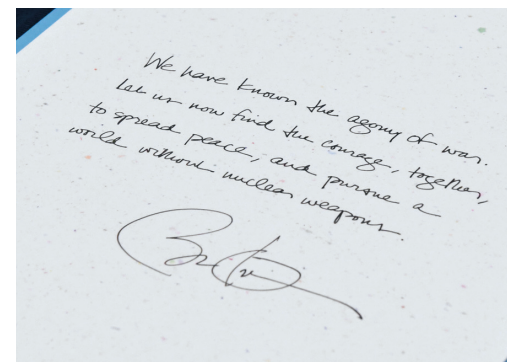 We have known the agony of war.
Let us now find the courage, together,
to spread peace, and pursue a
world without nuclear weapons.